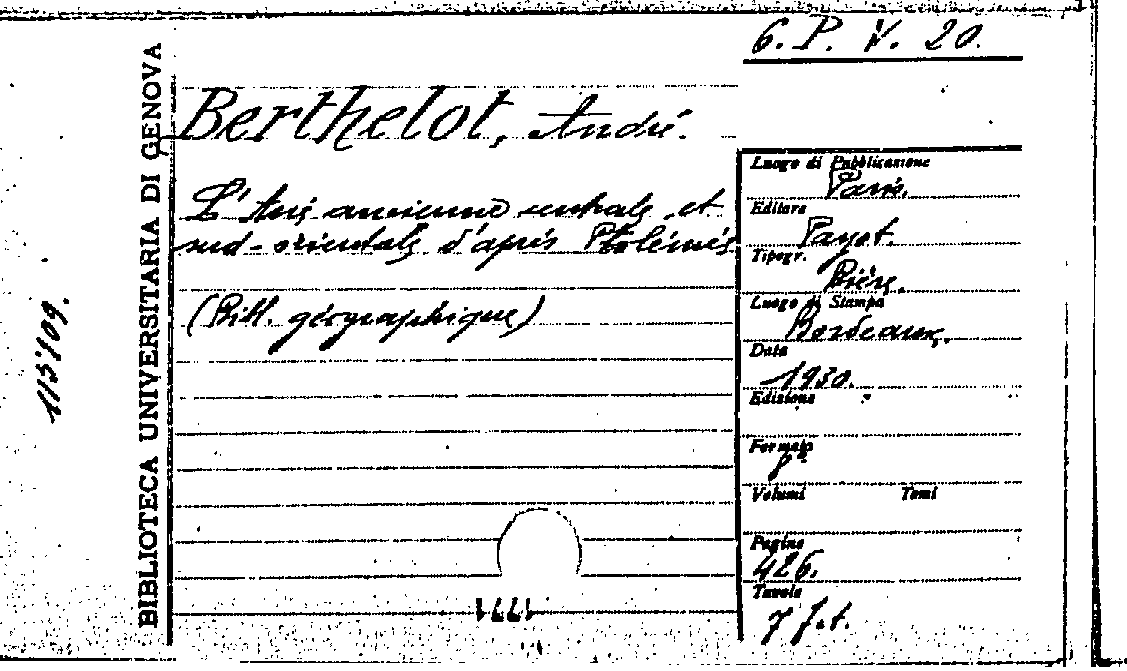 6. P. V. 20.
Berthelot, André.
L'Asie ancienne centrale et
sud-orientale d'après Ptolémée
(Bibl. géographique)
Luogo di Pubblicazione
Paris.
Editore
Payot.
Tipogr.
Bière.
Luogo di Stampa
Bordeaux.
Data
1930.
Edizione
Formato
8°
Volumi Tomi
Pagine
426.
Tavole
BIBLIOTECA UNIVERSITARIA DI GENOVA
115109.